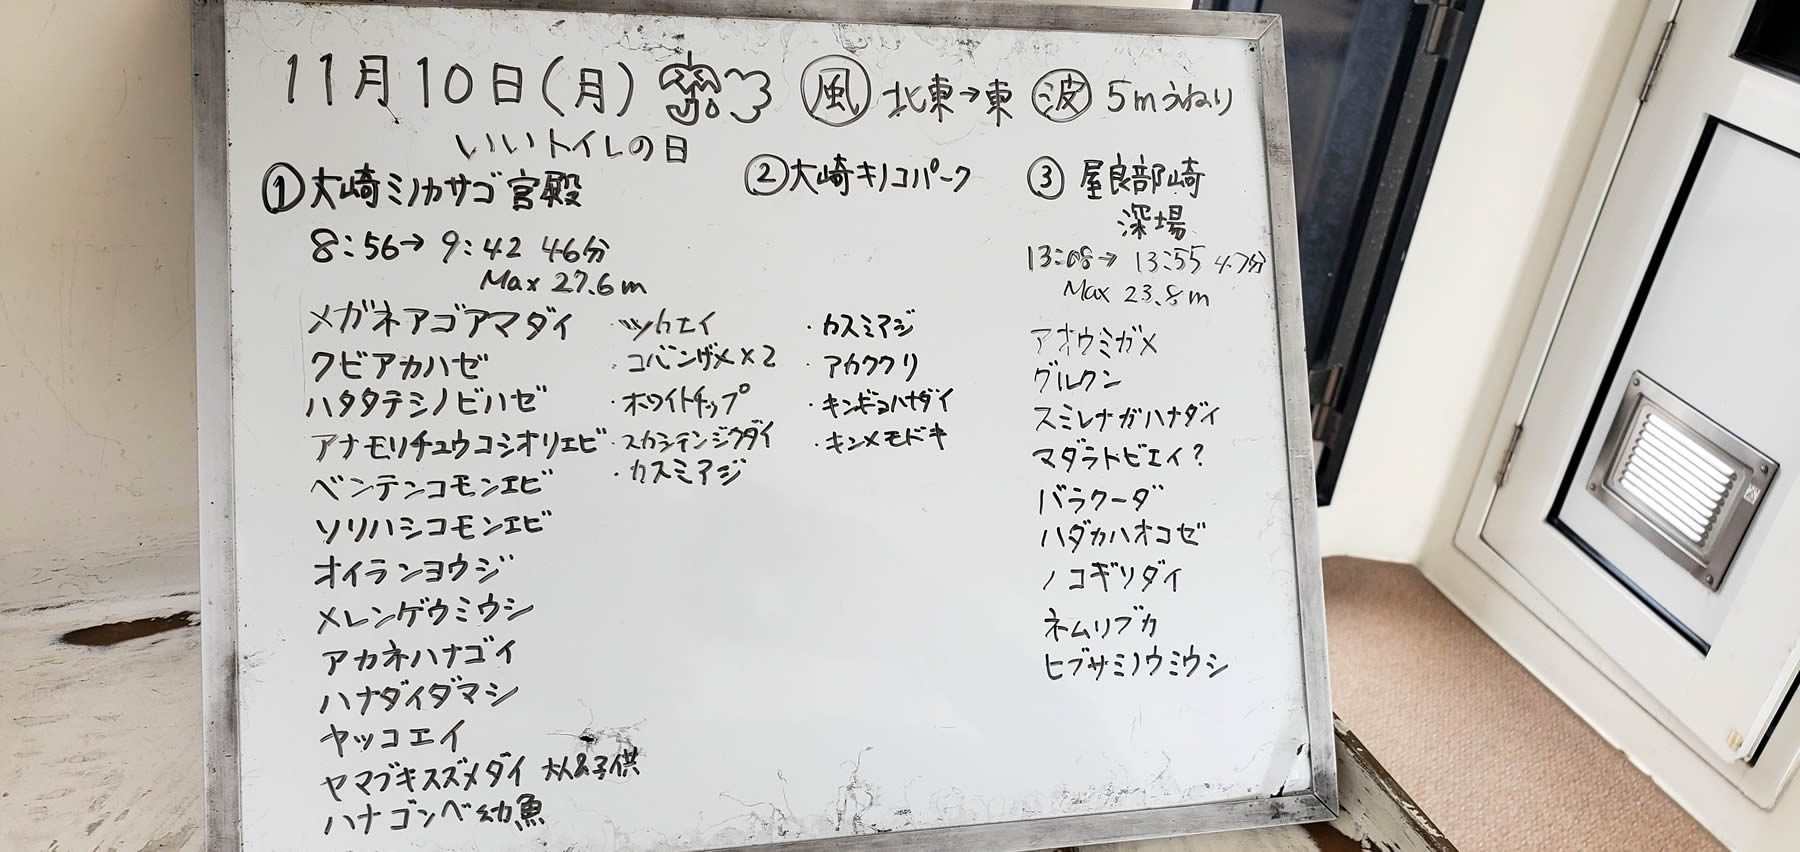 11月10日(月) 風 北東→東 波 5mうねり
いいトイレの日
①大崎ミノカサゴ宮殿
8:56→9:42 46分
Max 27.6m
メガネアゴアマダイ
クビアカハゼ
ハタタテシノビハゼ
アナモリチュウコシオリエビ
ベンテンコモンエビ
ソリハシコモンエビ
オイランヨウジ
メレンゲウミウシ
アカネハナゴイ
ハナダイダマシ
ヤッコエイ
ヤマブキスズメダイ 大人&子供
ハナゴンベ幼魚
②大崎キノコパーク
・ツカエイ
・コバンザメ×2
・ホワイトチップ
・スカシテンジクダイ
・カスミアジ
・カスミアジ
・アカククリ
・キンギョハナダイ
・キンメモドキ
③屋良部崎
深場
13:08→13:55 47分
Max 23.8m
アオウミガメ
グルクン
スミレナガハナダイ
マダラトビエイ?
バラクーダ
ハダカハオコゼ
ノコギリダイ
ネムリブカ
ヒブサミノウミウシ